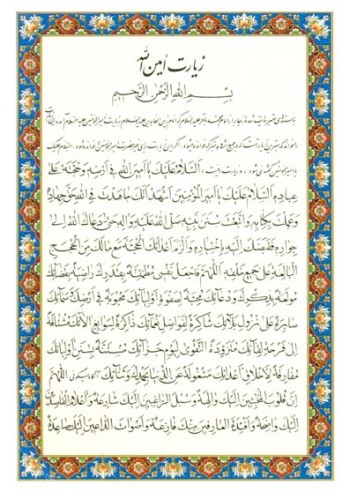 زیارت أمین الله
بِسْمِ اللهِ الرَّحْمٰنِ الرَّحیمِ
اَلسَّلامُ عَلَیْكَ یا اَمینَ اللهِ فی اَرْضِهِ وَحُجَّتَهُ عَلی
عِبادِهِ اَلسَّلامُ عَلَیْكَ یا اَمیرَ الْمُؤْمِنینَ اَشْهَدُ اَنَّكَ جاهَدْتَ فِی اللهِ حَقَّ جِهادِهِ
وَعَمِلْتَ بِكِتابِهِ وَاتَّبَعْتَ سُنَنَ نَبِیِّهِ صَلَّی اللهُ عَلَیْهِ وَالِهِ حَتّی دَعاكَ اللهُ اِلی
جِوارِهِ فَقَبَضَكَ اِلَیْهِ بِاخْتِیارِهِ وَاَلْزَمَ اَعْدائَكَ الْحُجَّةَ مَعَ مالَكَ مِنَ الْحُجَجِ
الْبالِغَةِ عَلی جَمیعِ خَلْقِهِ اَللّهُمَّ فَاجْعَلْ نَفْسی مُطْمَئِنَّةً بِقَدَرِكَ راضِیَةً بِقَضائِكَ
مُولَعَةً بِذِكْرِكَ وَدُعائِكَ مُحِبَّةً لِصَفْوَةِ اَوْلِیائِكَ مَحْبُوبَةً فی اَرْضِكَ وَسَمائِكَ
صابِرَةً عَلی نُزُولِ بَلائِكَ شاكِرَةً لِفَواضِلِ نَعْمائِكَ ذاكِرَةً لِسَوابِغِ الائِكَ مُشْتاقَةً
اِلی فَرْحَةِ لِقائِكَ مُتَزَوِّدَةً التَّقْوی لِیَوْمِ جَزائِكَ مُسْتَنَّةً بِسُنَنِ اَوْلِیائِكَ
مُفارِقَةً لِاَخْلاقِ اَعْدائِكَ مَشْغُولَةً عَنِ الدُّنْیا بِحَمْدِكَ وَثَنائِكَ اَللّهُمَّ
اِنَّ قُلُوبَ الْمُخْبِتینَ اِلَیْكَ والِهَةٌ وَسُبُلَ الرّاغِبینَ اِلَیْكَ شارِعَةٌ وَاَعْلامَ الْقاصِدینَ
اِلَیْكَ واضِحَةٌ وَاَفْئِدَةَ الْعارِفینَ مِنْكَ فازِعَةٌ وَاَصْواتَ الدّاعینَ اِلَیْكَ صاعِدَةٌ